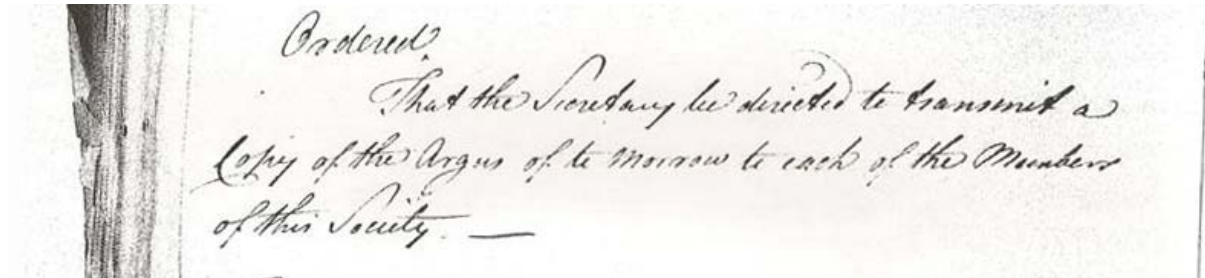 Ordered.
That the Secretary be directed to transmit a
Copy of the Argus of to morrow to each of the Members
of this Society. —